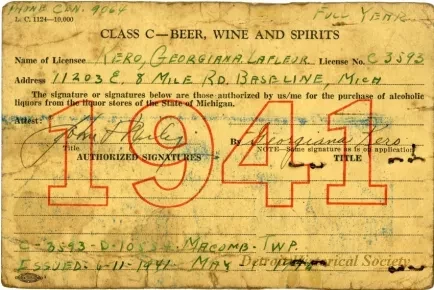 PHONE CEN. 9064 FULL YEAR
L. C. 1124—10-000
CLASS C—BEER, WINE AND SPIRITS
Name of Licensee KERO, GEORGIANA LAFLEUR License No. C 3593
Address 11203 E. 8 MILE RD. BASELINE, MICH
The signature or signatures below are those authorized by us/me for the purchase of alcoholic
liquors from the liquor stores of the State of Michigan.
Attest:
John By Georgiana Kero
Title NOTE—Same signature as is on application
AUTHORIZED SIGNATURES TITLE
1941
C-3593-D-1053 MACOMB. TWP.
ISSUED 6-11-1941 MAY
Detroit Historical Society